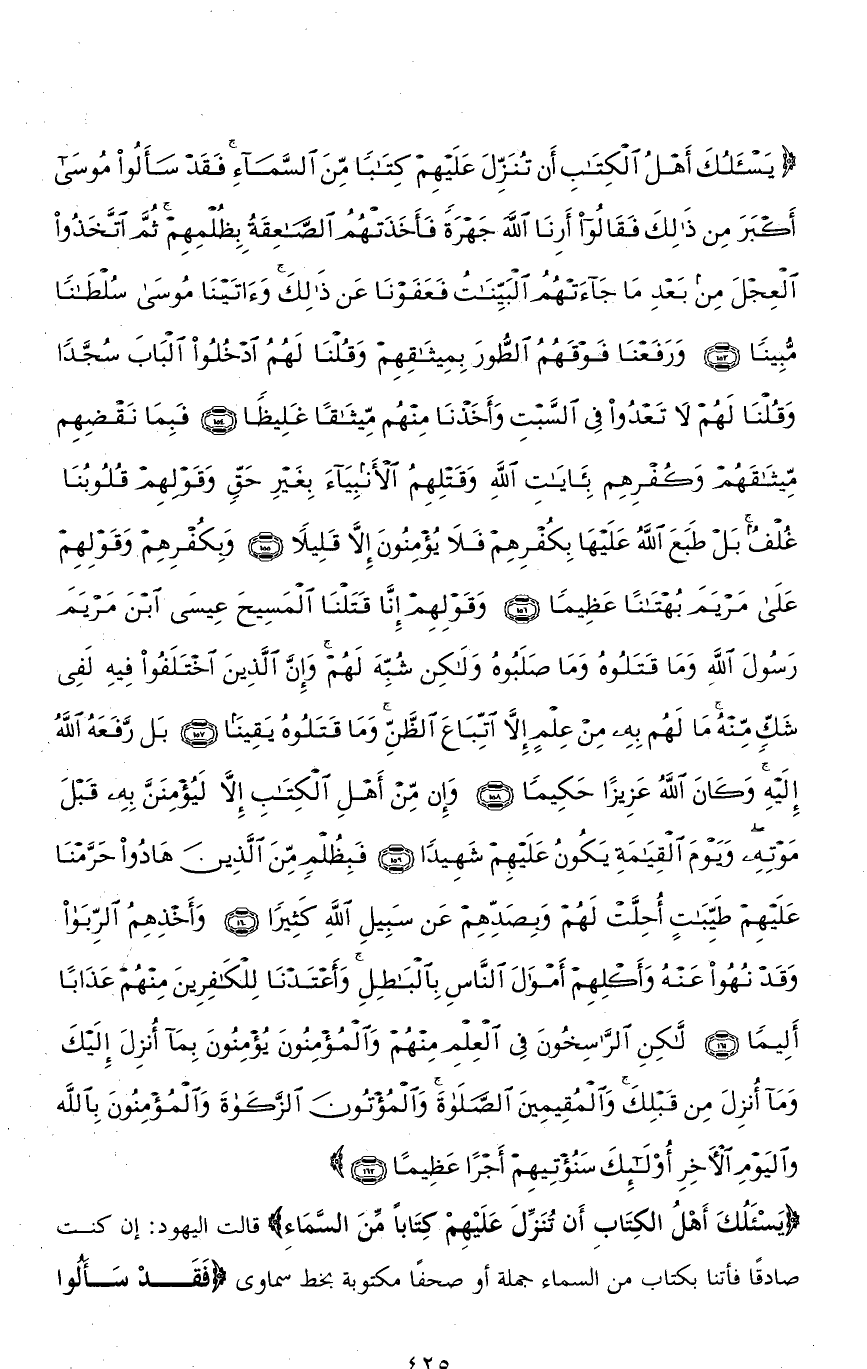 ﴿ يَسْـَٔلُكَ أَهْلُ ٱلْكِتَـٰبِ أَن تُنَزِّلَ عَلَيْهِمْ كِتَـٰبًا مِّنَ ٱلسَّمَآءِ ۚ فَقَدْ سَأَلُوا۟ مُوسَىٰٓ
أَكْبَرَ مِن ذَٰلِكَ فَقَالُوٓا۟ أَرِنَا ٱللَّهَ جَهْرَةً فَأَخَذَتْهُمُ ٱلصَّـٰعِقَةُ بِظُلْمِهِمْ ۚ ثُمَّ ٱتَّخَذُوا۟
ٱلْعِجْلَ مِنۢ بَعْدِ مَا جَآءَتْهُمُ ٱلْبَيِّنَـٰتُ فَعَفَوْنَا عَن ذَٰلِكَ ۚ وَءَاتَيْنَا مُوسَىٰ سُلْطَـٰنًا
مُّبِينًا ١٥٣ وَرَفَعْنَا فَوْقَهُمُ ٱلطُّورَ بِمِيثَـٰقِهِمْ وَقُلْنَا لَهُمُ ٱدْخُلُوا۟ ٱلْبَابَ سُجَّدًا
وَقُلْنَا لَهُمْ لَا تَعْدُوا۟ فِى ٱلسَّبْتِ وَأَخَذْنَا مِنْهُم مِّيثَـٰقًا غَلِيظًا ١٥٤ فَبِمَا نَقْضِهِم
مِّيثَـٰقَهُمْ وَكُفْرِهِم بِـَٔايَـٰتِ ٱللَّهِ وَقَتْلِهِمُ ٱلْأَنۢبِيَآءَ بِغَيْرِ حَقٍّ وَقَوْلِهِمْ قُلُوبُنَا
غُلْفٌۢ ۚ بَلْ طَبَعَ ٱللَّهُ عَلَيْهَا بِكُفْرِهِمْ فَلَا يُؤْمِنُونَ إِلَّا قَلِيلًا ١٥٥ وَبِكُفْرِهِمْ وَقَوْلِهِمْ
عَلَىٰ مَرْيَمَ بُهْتَـٰنًا عَظِيمًا ١٥٦ وَقَوْلِهِمْ إِنَّا قَتَلْنَا ٱلْمَسِيحَ عِيسَى ٱبْنَ مَرْيَمَ
رَسُولَ ٱللَّهِ وَمَا قَتَلُوهُ وَمَا صَلَبُوهُ وَلَـٰكِن شُبِّهَ لَهُمْ ۚ وَإِنَّ ٱلَّذِينَ ٱخْتَلَفُوا۟ فِيهِ لَفِى
شَكٍّ مِّنْهُ ۚ مَا لَهُم بِهِۦ مِنْ عِلْمٍ إِلَّا ٱتِّبَاعَ ٱلظَّنِّ ۚ وَمَا قَتَلُوهُ يَقِينًۢا ١٥٧ بَل رَّفَعَهُ ٱللَّهُ
إِلَيْهِ ۚ وَكَانَ ٱللَّهُ عَزِيزًا حَكِيمًا ١٥٨ وَإِن مِّنْ أَهْلِ ٱلْكِتَـٰبِ إِلَّا لَيُؤْمِنَنَّ بِهِۦ قَبْلَ
مَوْتِهِۦ ۖ وَيَوْمَ ٱلْقِيَـٰمَةِ يَكُونُ عَلَيْهِمْ شَهِيدًا ١٥٩ فَبِظُلْمٍ مِّنَ ٱلَّذِينَ هَادُوا۟ حَرَّمْنَا
عَلَيْهِمْ طَيِّبَـٰتٍ أُحِلَّتْ لَهُمْ وَبِصَدِّهِمْ عَن سَبِيلِ ٱللَّهِ كَثِيرًا ١٦٠ وَأَخْذِهِمُ ٱلرِّبَوٰا۟
وَقَدْ نُهُوا۟ عَنْهُ وَأَكْلِهِمْ أَمْوَٰلَ ٱلنَّاسِ بِٱلْبَـٰطِلِ ۚ وَأَعْتَدْنَا لِلْكَـٰفِرِينَ مِنْهُمْ عَذَابًا
أَلِيمًا ١٦١ لَّـٰكِنِ ٱلرَّٰسِخُونَ فِى ٱلْعِلْمِ مِنْهُمْ وَٱلْمُؤْمِنُونَ يُؤْمِنُونَ بِمَآ أُنزِلَ إِلَيْكَ
وَمَآ أُنزِلَ مِن قَبْلِكَ ۚ وَٱلْمُقِيمِينَ ٱلصَّلَوٰةَ ۚ وَٱلْمُؤْتُونَ ٱلزَّكَوٰةَ وَٱلْمُؤْمِنُونَ بِٱللَّهِ
وَٱلْيَوْمِ ٱلْـَٔاخِرِ أُو۟لَـٰٓئِكَ سَنُؤْتِيهِمْ أَجْرًا عَظِيمًا ١٦٢ ﴾
﴿يَسْـَٔلُكَ أَهْلُ الكِتَابِ أَن تُنَزِّلَ عَلَيْهِمْ كِتَاباً مِّنَ السَّمَاءِ﴾ قالت اليهود: إن كنت
صادقًا فأتنا بكتاب من السماء جملة أو صحفًا مكتوبة بخط سماوى ﴿فَقَدْ سَأَلُوا
٤٢٥